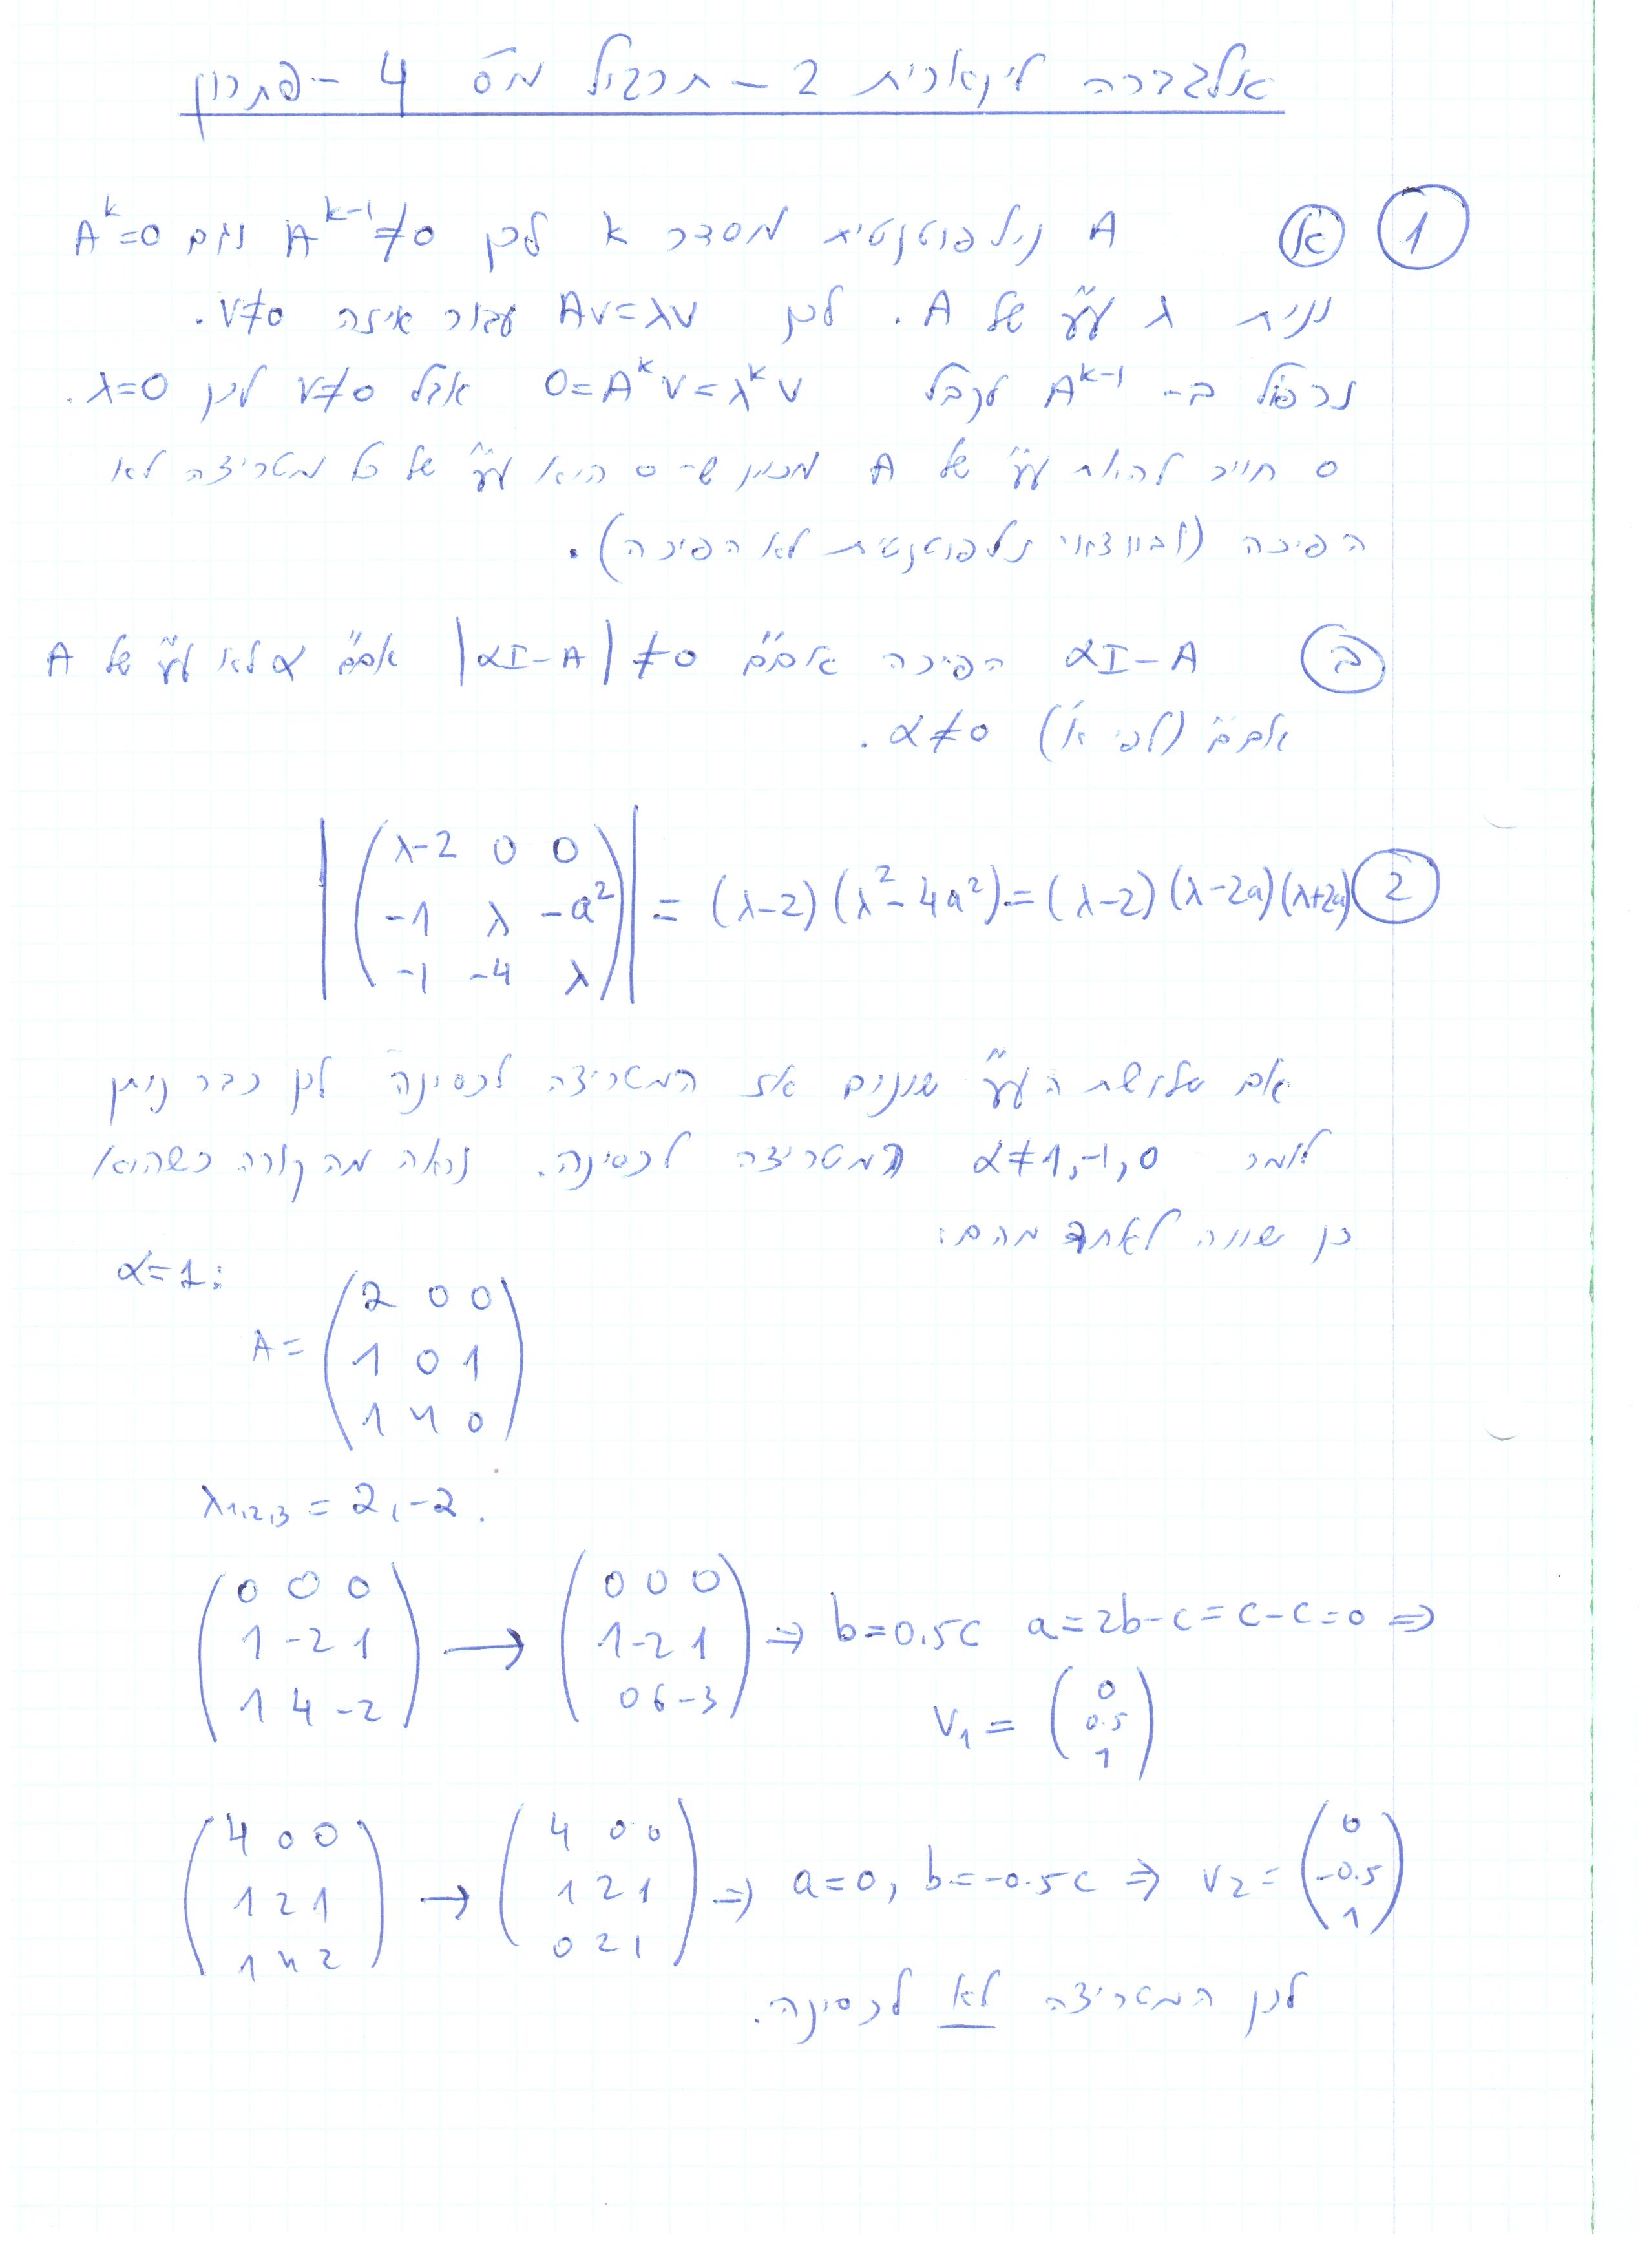 אלגברה לינארית 2 - תרגיל מס' 4 - פתרון
1 א A נילפוטנטית מסדר k לכן A^{k-1}≠0 וגם A^k=0
נניח λ ע"ע של A. לכן Av=λv עבור איזה v≠0.
נכפול ב- A^{k-1} לקבל 0=A^k v=λ^k v אבל v≠0 לכן λ=0.
0 חייב להיות ע"ע של A מכיוון ש-0 היא ע"ע של כל מטריצה לא
הפיכה (ובוודאי נילפוטנטית לא הפיכה).
ב αI-A הפיכה אם"ם |αI-A|≠0 אם"ם α לא ע"ע של A
אם"ם (לפי א') α≠0.
2 |(λ-2 0 0
-1 λ -a²
-1 -4 λ)| = (λ-2)(λ²-4a²)=(λ-2)(λ-2a)(λ+2a)
אם שלושת הע"ע שונים אז המטריצה לכסינה לכן כבר ניתן
לומר α≠1,-1,0 המטריצה לכסינה. נראה מה קורה כשהוא
כן שווה לאחד מהם:
α=1:
A= (2 0 0
1 0 1
1 4 0)
λ1,2,3 = 2,-2.
(0 0 0
1 -2 1
1 4 -2) → (0 0 0
1 -2 1
0 6 -3) ⇒ b=0.5c a=2b-c=c-c=0 ⇒
v1 = (0
0.5
1)
(4 0 0
1 2 1
1 4 2) → (4 0 0
1 2 1
0 2 1) ⇒ a=0, b=-0.5c ⇒ v2= (0
-0.5
1)
לכן המטריצה לא לכסינה.